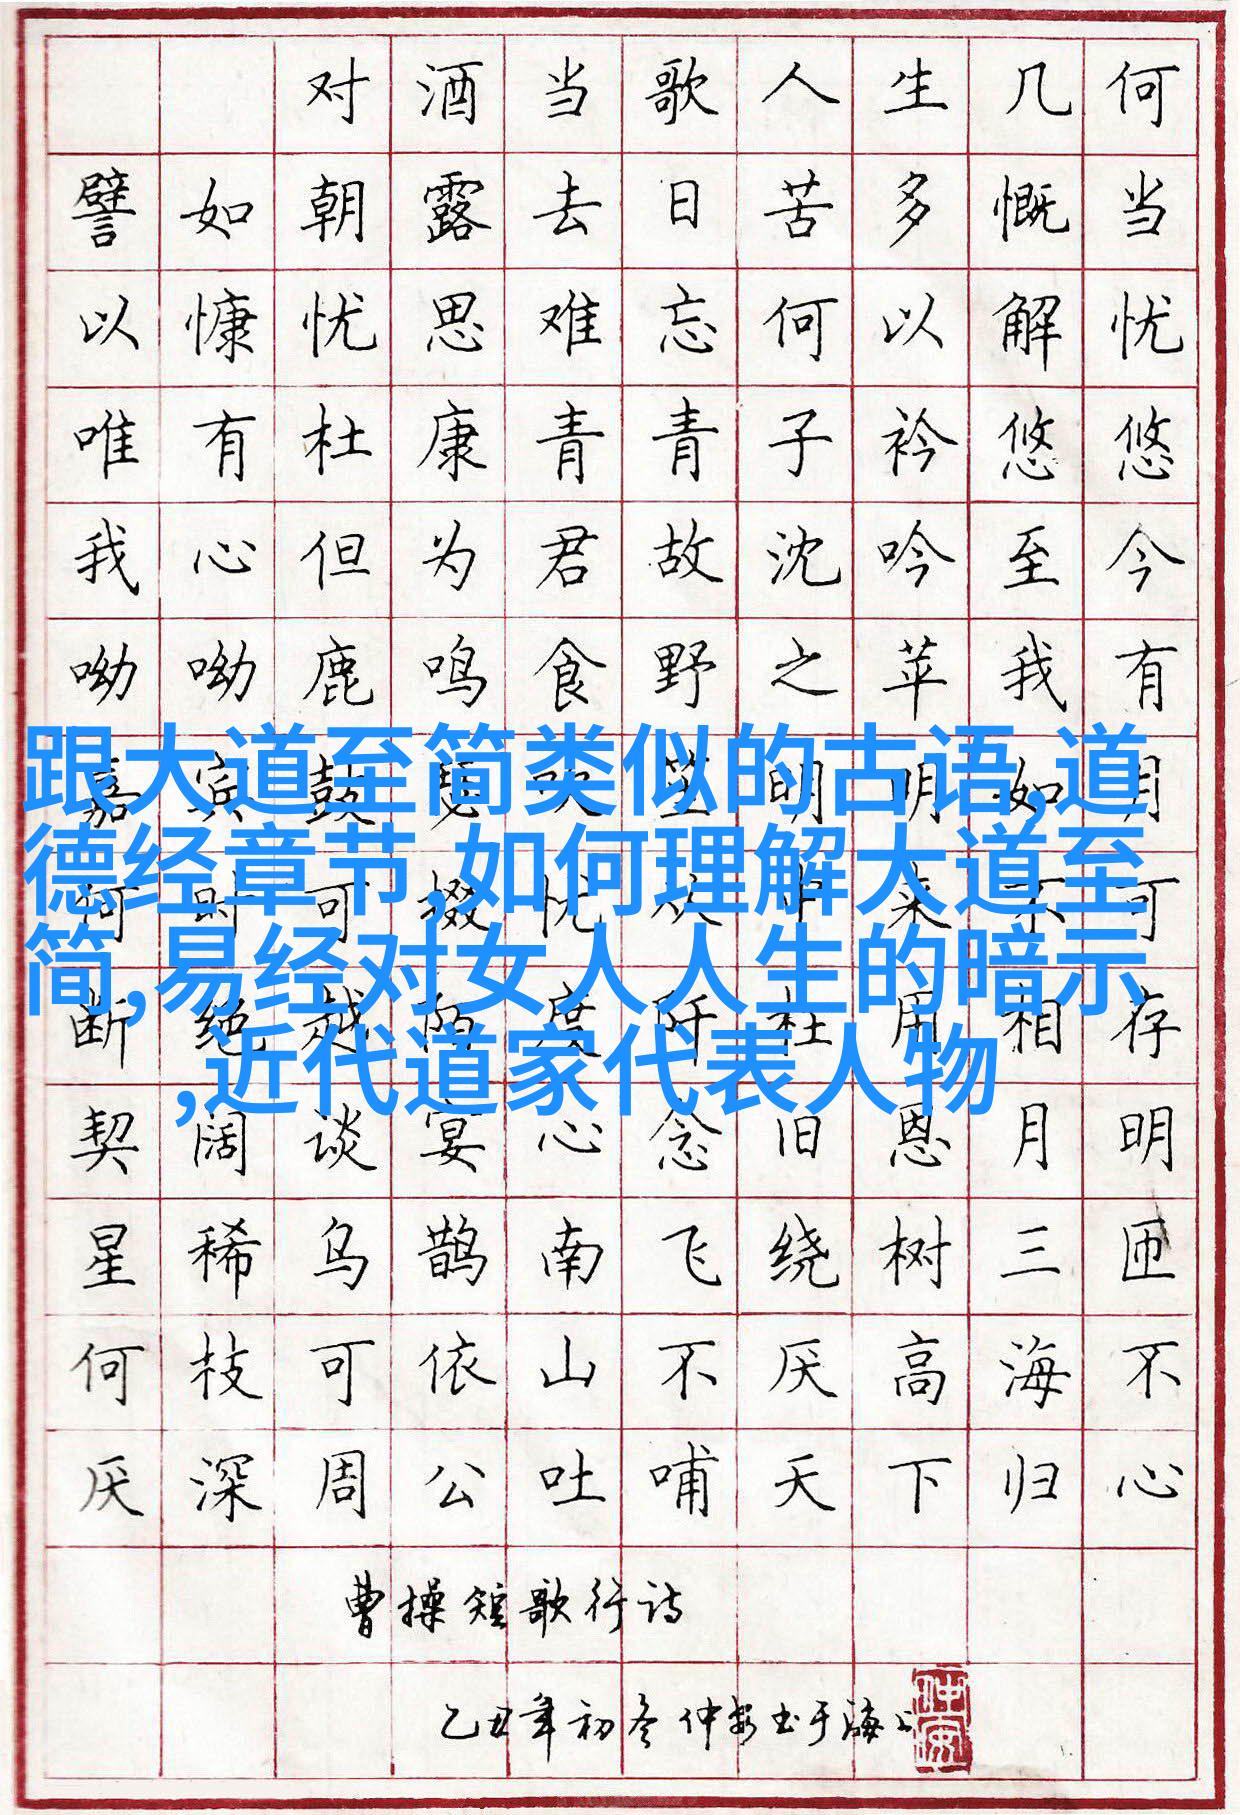 对酒当歌人生几何
譬如朝露去日苦多慨当
以慷忧思难忘何以解忧
唯有杜康青青子衿悠悠
我心但为君故沈吟至今
呦呦鹿鸣食野之苹我有
嘉宾鼓瑟吹笙明明如月
跟大道至简类似的古语,道
何时可掇忧从中来不可
德经章节,如何理解大道至
断绝越陌度阡枉用相存
简,易经对女人人生的暗示
,近代道家代表人物
契阔谈宴心念旧恩月明
星稀乌鹊南飞绕树三匝
何枝可依山不厌高海不
厌深周公吐哺天下归心
曹操短歌行诗
乙丑年初冬仲安书于海上
仲安